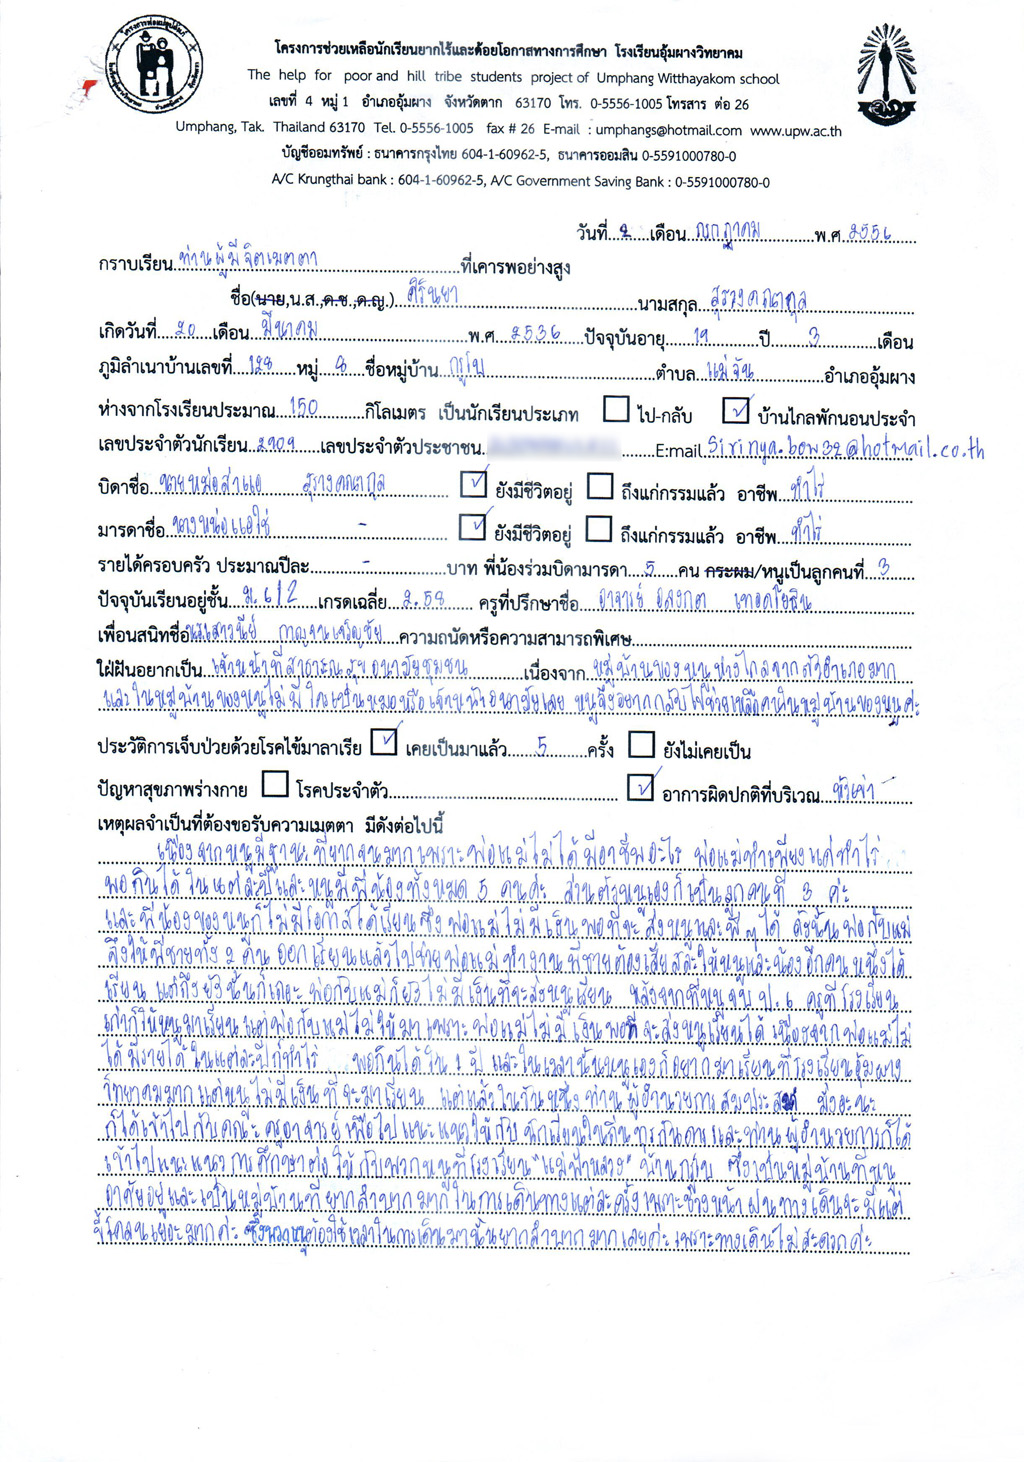 โครงการช่วยเหลือนักเรียนยากไร้และด้อยโอกาสทางการศึกษา โรงเรียนอุ้มผางวิทยาคม
The help for poor and hill tribe students project of Umphang Witthayakom school
เลขที่ 4 หมู่ 1 อำเภออุ้มผาง จังหวัดตาก 63170 โทร. 0-5556-1005 โทรสาร ต่อ 26
Umphang, Tak. Thailand 63170 Tel. 0-5556-1005 fax # 26 E-mail : umphangs@hotmail.com www.upw.ac.th
บัญชีออมทรัพย์ : ธนาคารกรุงไทย 604-1-60962-5, ธนาคารออมสิน 0-5591000780-0
A/C Krungthai bank : 604-1-60962-5, A/C Government Saving Bank : 0-5591000780-0
วันที่ 2 เดือน กรกฎาคม พ.ศ. 2556
กราบเรียน ท่านผู้มีจิตเมตตา ที่เคารพอย่างสูง
ชื่อ(นาย,น.ส.,ด.ช.,ด.ญ.) ศิรินยา นามสกุล สุรางคณตกุล
เกิดวันที่ 20 เดือน มีนาคม พ.ศ 2536 ปัจจุบันอายุ 19 ปี 3 เดือน
ภูมิลำเนาบ้านเลขที่ 128 หมู่ 8 ชื่อหมู่บ้าน กรูโบ ตำบล แม่จัน อำเภออุ้มผาง
ห่างจากโรงเรียนประมาณ 150 กิโลเมตร เป็นนักเรียนประเภท ไป-กลับ บ้านไกลพักนอนประจำ
เลขประจำตัวนักเรียน 2909 เลขประจำตัวประชาชน E:mail Sirinya.bow32@hotmail.co.th
บิดาชื่อ สุรางคณตกุล ยังมีชีวิตอยู่ ถึงแก่กรรมแล้ว อาชีพ ทำไร่
มารดาชื่อ นางหน่อแอใช่ - ยังมีชีวิตอยู่ ถึงแก่กรรมแล้ว อาชีพ ทำไร่
รายได้ครอบครัว ประมาณปีละ - บาท พี่น้องร่วมบิดามารดา 5 คน กระผม/หนูเป็นลูกคนที่ 3
ปัจจุบันเรียนอยู่ชั้น ม.6/2 เกรดเฉลี่ย 2.58 ครูที่ปรึกษาชื่อ อาจารย์ อลงกต
เพื่อนสนิทชื่อ กาญจนเจริญชัย ความถนัดหรือความสามารถพิเศษ
ใฝ่ฝันอยากเป็น เจ้าหน้าที่สาธารณสุข อนามัยชุมชน เนื่องจาก หมู่บ้านของหนูห่างไกลจากตัวอำเภอมาก
และในหมู่บ้านของหนูไม่มีใครเป็นหมอหรือเจ้าหน้าอนามัยเลย หนูจึงอยากกลับไปช่วยเหลือคนในหมู่บ้านของหนูค่ะ
ประวัติการเจ็บป่วยด้วยโรคไข้มาลาเรีย เคยเป็นมาแล้ว 5 ครั้ง ยังไม่เคยเป็น
ปัญหาสุขภาพร่างกาย โรคประจำตัว อาการผิดปกติที่บริเวณ หัวเข่า
เหตุผลจำเป็นที่ต้องขอรับความเมตตา มีดังต่อไปนี้
เนื่องจากหนูมีฐานะที่ยากจนมากเพราะพ่อแม่ไม่ได้มีอาชีพอะไร พ่อแม่ทำเพียงแค่ทำไร่
พอกินได้ในแต่ละปีและหนูมีพี่น้องทั้งหมด 5 คนค่ะ ส่วนตัวหนูเองก็เป็นลูกคนที่ 3 ค่ะ
และพี่น้องของหนูก็ไม่มีโอกาสได้เรียนซึ่งพ่อแม่ไม่มีเงินพอที่จะส่งหนูและพี่ๆได้ ดังนั้นพ่อกับแม่
จึงให้พี่ชายทั้ง 2 คน ออกเรียนแล้วไปช่วยพ่อแม่ทำงาน พี่ชายต้องเสียสละให้หนูและน้องอีกคนหนึ่งได้
เรียน แต่ถึงยังงั้นก็เถอะพ่อกับแม่ก็ยังไม่มีเงินที่จะส่งหนูเรียน หลังจากที่หนูจบ ป.6 ครูที่โรงเรียน
เก่าก็ให้หนูมาเรียนแต่พ่อกับแม่ไม่ให้มาเพราะพ่อแม่ไม่มีเงินพอที่จะส่งหนูเรียนได้ เนื่องจากพ่อแม่ไม่
ได้มีรายได้ในแต่ละปีก็ทำไร่ พอกินได้ใน 1 ปี และในเวลานั้นหนูเองก็อยากมาเรียนที่โรงเรียนอุ้มผาง
วิทยาคมมากแต่หนูไม่มีเงินที่จะมาเรียน แต่แล้วในวันหนึ่งท่านผู้อำนวยการ สมประสงค์ มั่งอะนะ
ก็ได้เข้าไปกับคณะครูอาจารย์เพื่อไปแนะแนวให้กับนักเรียนในถิ่นทุรกันดารและท่านผู้อำนวยการก็ได้
เข้าไปแนะแนวการศึกษาต่อให้กับพวกหนูที่โรงเรียน "แม่ฟ้าหลวง" บ้านกรูโบ ซึ่งเป็นหมู่บ้านที่หนู
อาศัยอยู่และเป็นหมู่บ้านที่ยากลำบากมากในการเดินทางแต่ละครั้ง เพราะช่วงหน้าฝนทางเดินจะมีแต่
ขี้โคลนเยอะมากค่ะ ซึ่งพวกหนูต้องใช้เวลาในการเดินมานั้นยากลำบากมากเลยค่ะ เพราะทางเดินไม่สะดวกค่ะ